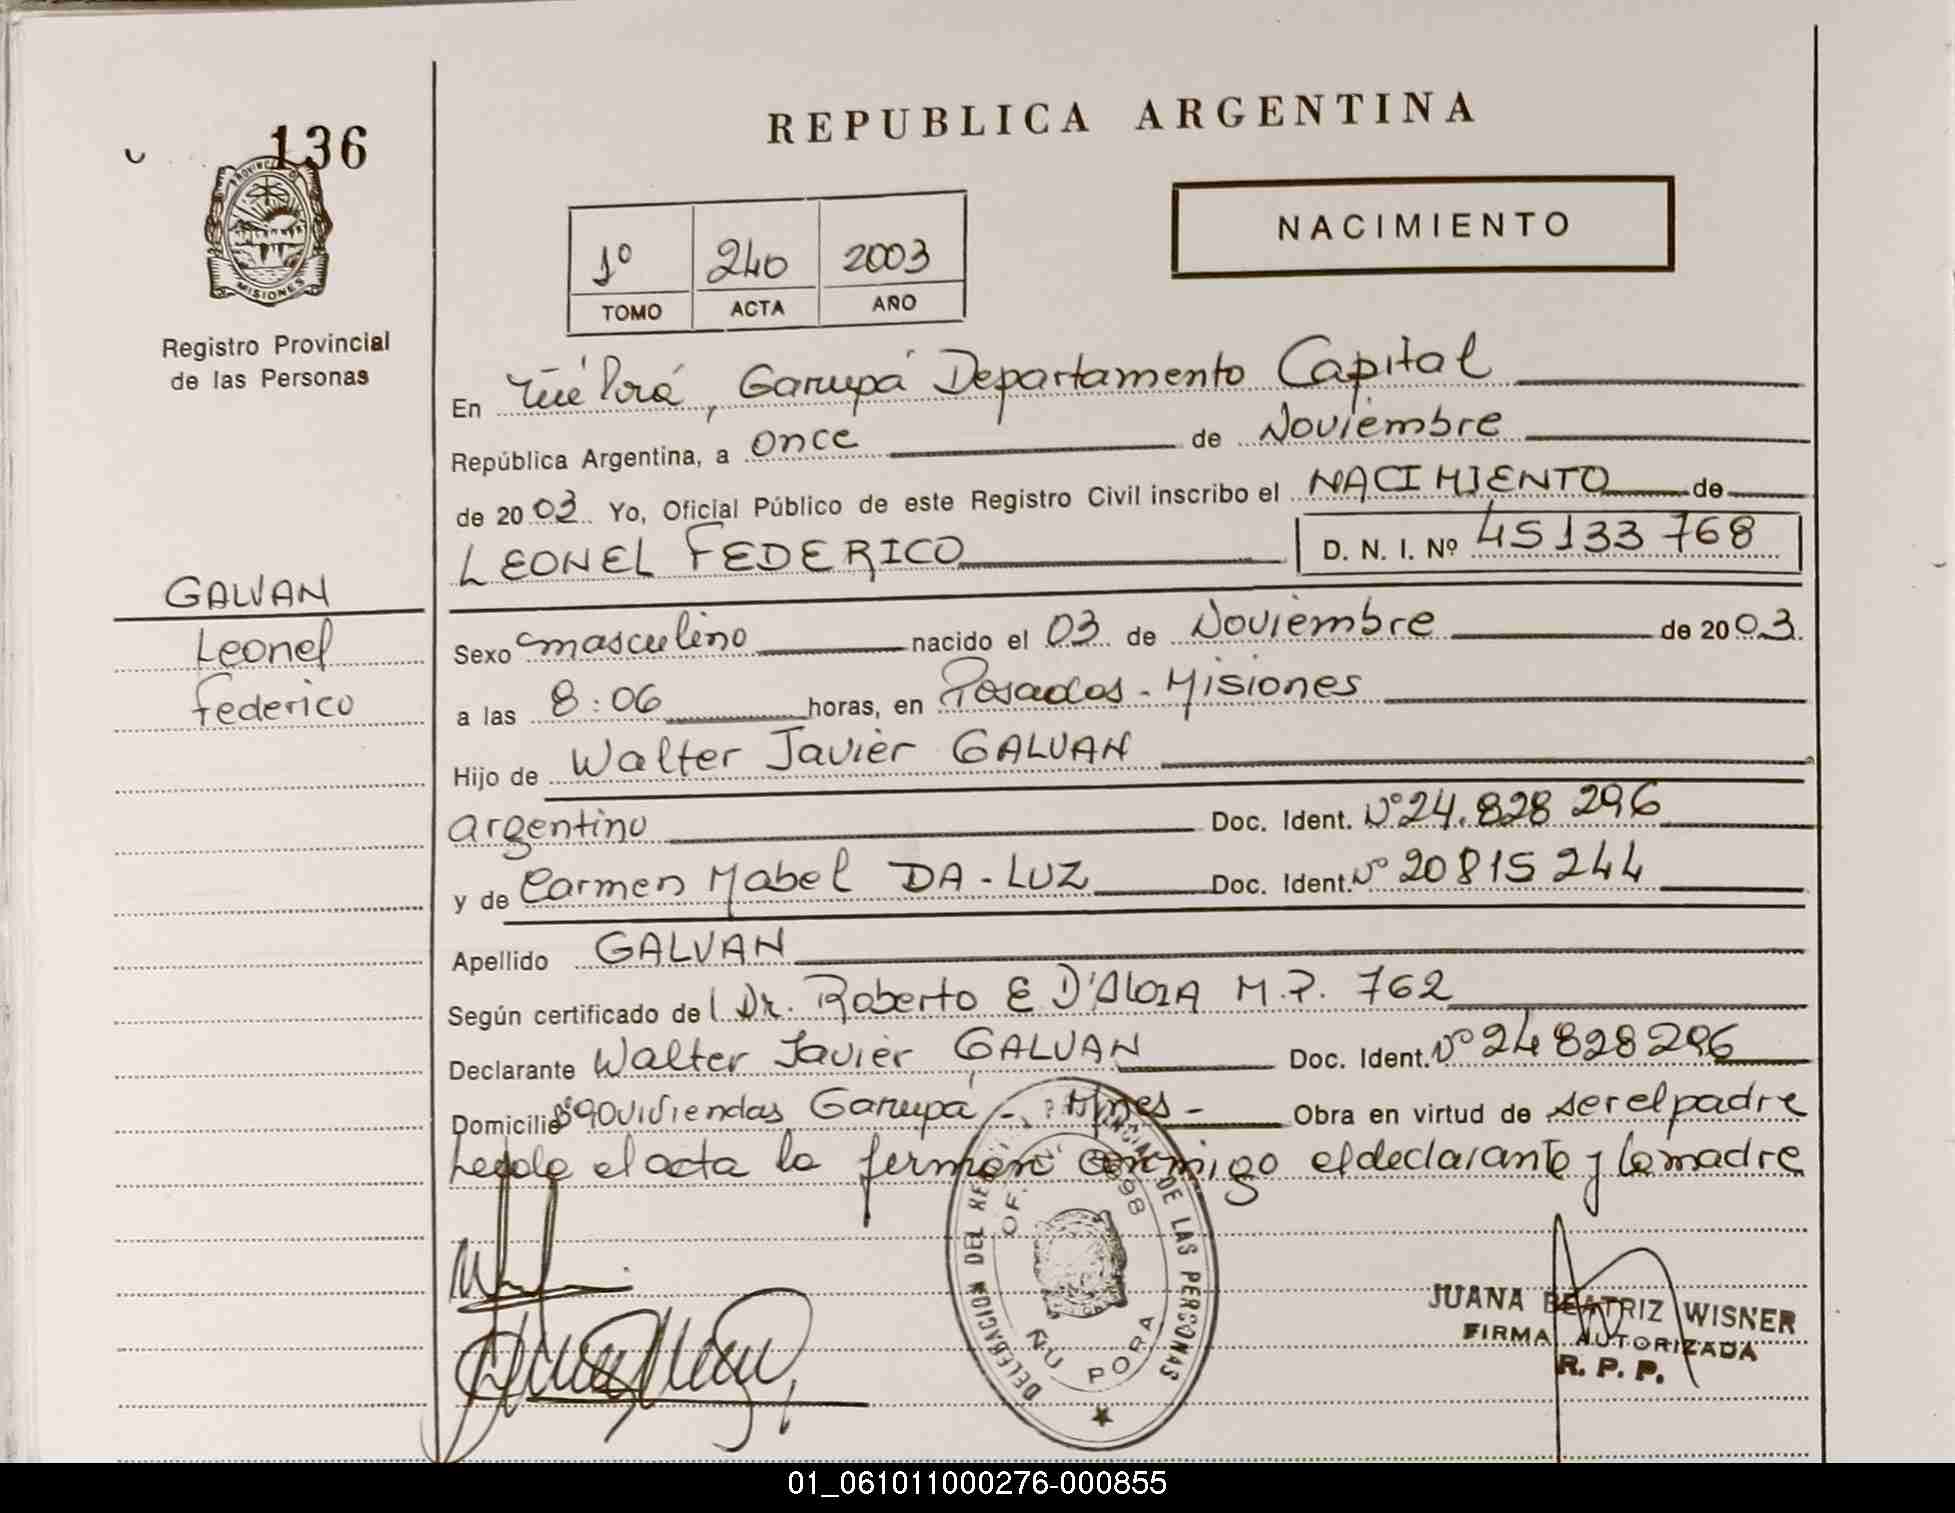 136
PROVINCIA D
MISIONES
Registro Provincial
de las Personas
GALVAN
Leonel
Federico
REPUBLICA ARGENTINA
NACIMIENTO
1º 240 2003
TOMO ACTA AÑO
En Ñu Porá, Garupá Departamento Capital
República Argentina, a once de Noviembre
de 2003 Yo, Oficial Público de este Registro Civil inscribo el NACIMIENTO de
LEONEL FEDERICO D. N. I. Nº 45133768
Sexo masculino nacido el 03 de Noviembre de 2003.
a las 8:06 horas, en Posadas - Misiones
Hijo de Walter Javier GALVAN
argentino Doc. Ident. Nº 24.828 296
y de Carmen Mabel DA-LUZ Doc. Ident. Nº 20815244
Apellido GALVAN
Según certificado del Dr. Roberto E M.P. 762
Declarante Walter Javier GALVAN Doc. Ident. Nº 24828296
Domicilio 90 viviendas Garupá - Mnes - Obra en virtud de ser el padre
el acta la firman conmigo el declarante y la madre
DELEGACION DEL REGISTRO PROVINCIAL DE LAS PERSONAS
OF. 98
ÑU PORA
JUANA BEATRIZ WISNER
FIRMA AUTORIZADA
R. P. P.
01_061011000276-000855